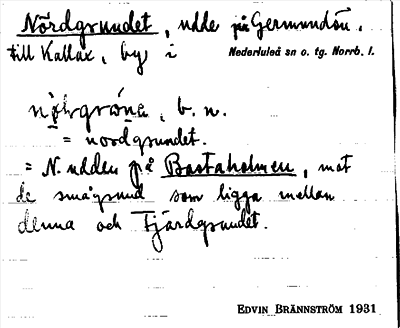 Nordgrundet, udde på Germundön.
till Kallax, by i Nederluleå sn o. tg. Norrb. l.
b. n.
= nordgrundet.
= N. udden på Bastaholmen, mot
de smågrund som ligga mellan
denna och Fjärdgrundet.
EDVIN BRÄNNSTRÖM 1931